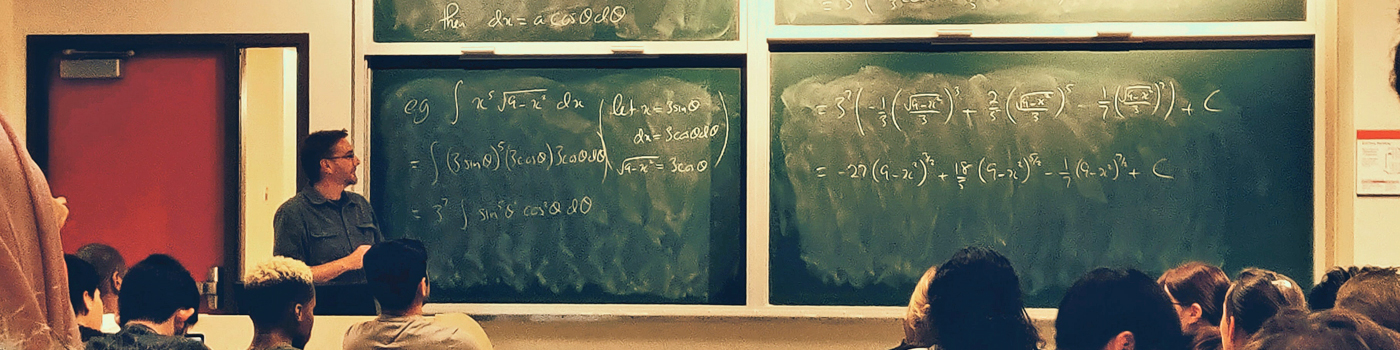 then dx = a cosθ dθ
eg ∫ x⁵ √9-x² dx
let x = 3sinθ
dx = 3cosθdθ
√9-x² = 3cosθ
= ∫ (3sinθ)⁵ (3cosθ) 3cosθdθ
= 3⁷ ∫ sin⁵θ cos²θ dθ
= 3⁷ ( -1/3 (√9-x²/3)³ + 2/5 (√9-x²/3)⁵ - 1/7 (√9-x²/3)⁷ ) + C
= -27 (9-x²)^3/2 + 18/5 (9-x²)^5/2 - 1/7 (9-x²)^7/2 + C